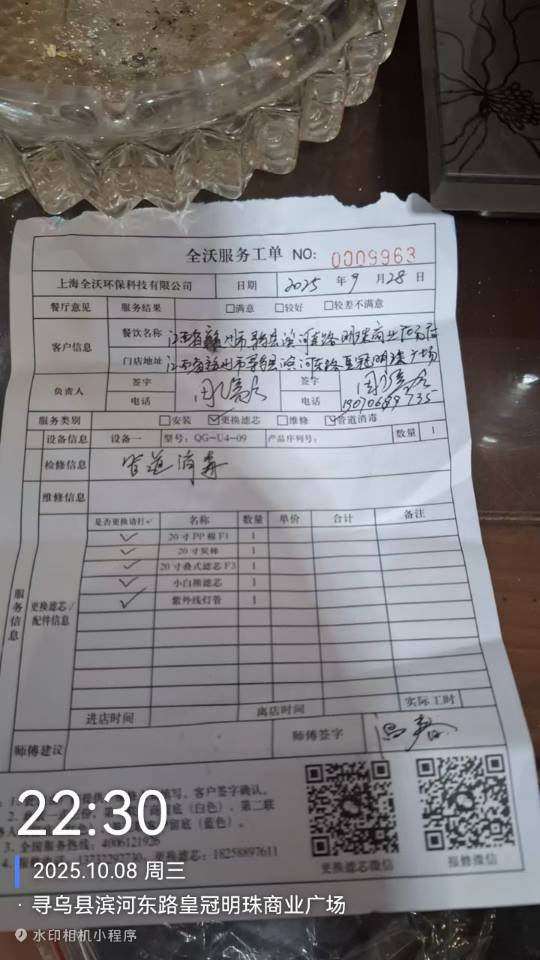 全沃服务工单 NO: 0009963
上海全沃环保科技有限公司 日期 2025 年 9 月 28 日
餐厅意见 服务结果 □满意 □较好 □较差不满意
客户信息 餐饮名称 江西省赣州市寻乌县滨河东路明珠商业广场
门店地址 江西省赣州市寻乌县滨河东路皇冠明珠广场
负责人 签字 签字
电话 电话
服务类别 □安装 ☑更换滤芯 □维修 ☑管道消毒
设备信息 设备一 型号: QG-U4-09 产品序列号: 数量 1
检修信息 管道消毒
维修信息
服务信息 更换滤芯/配件信息
是否更换请打✓ 名称 数量 单价 合计 备注
✓ 20寸PP棉F1 1
✓ 20寸炭棒 1
✓ 20寸叠式滤芯F3 1
✓ 小白熊滤芯 1
✓ 紫外线灯管 1
实际工时
进店时间 离店时间
师傅建议 师傅签字
填写、客户签字确认。
留底（白色）、第二联
留底（蓝色）。
3、全国服务热线: 4006121926
更换滤芯: 18258897611
更换滤芯微信 报修微信
22:30
2025.10.08 周三
· 寻乌县滨河东路皇冠明珠商业广场
水印相机小程序